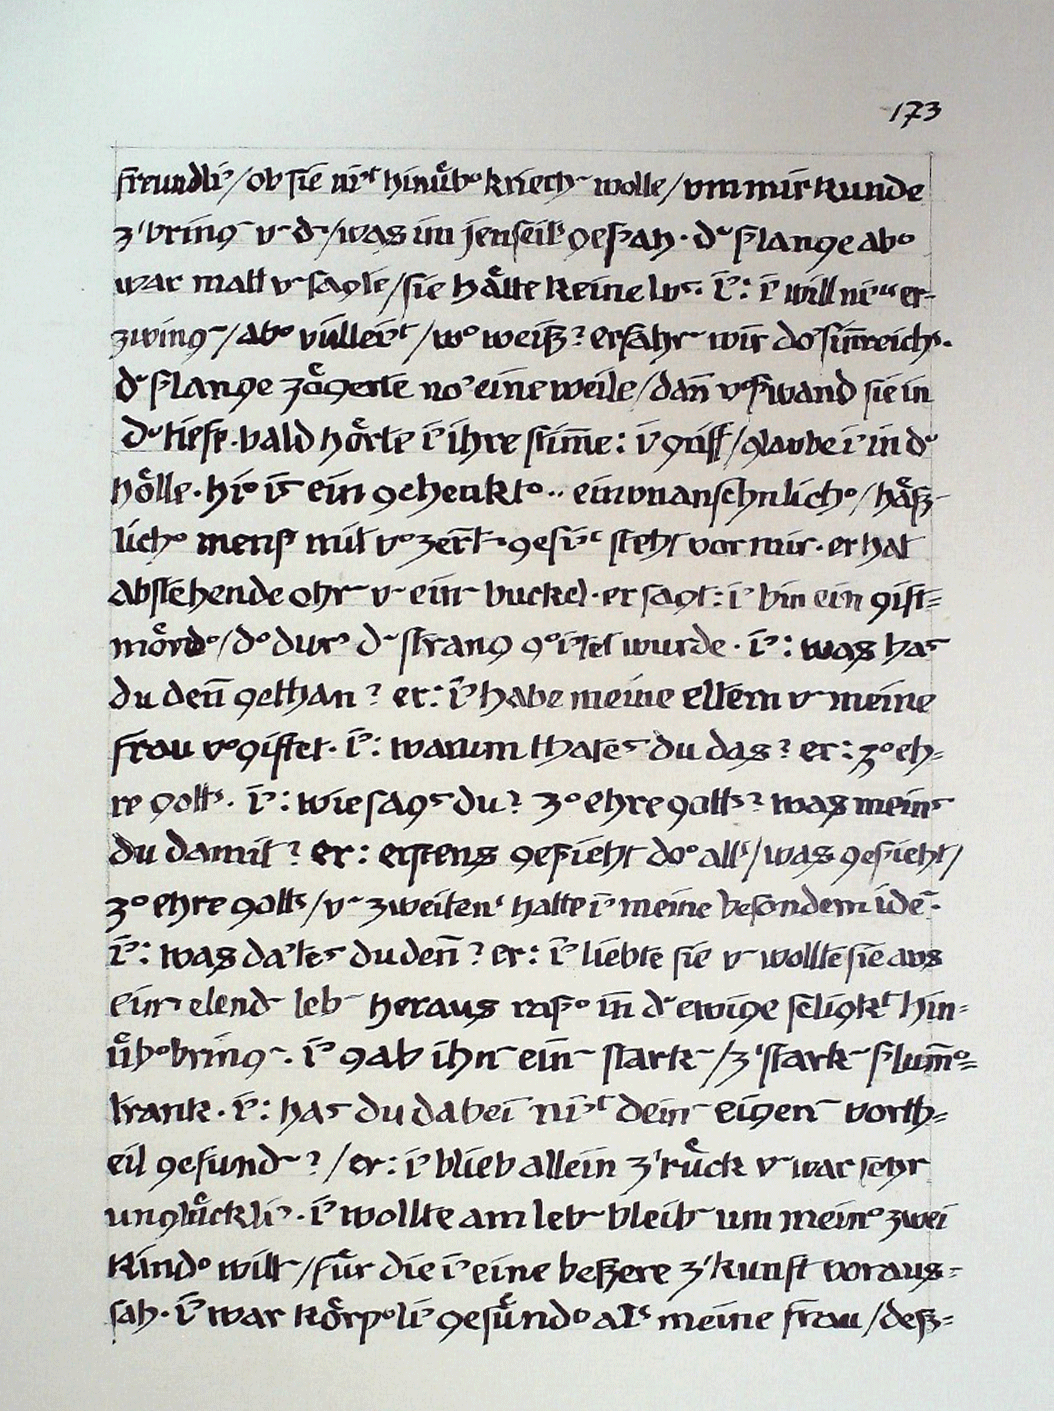 173
freundli/ob sie ni't hinübo kriech wolle/vm mir kunde
z'bring v d/was im jenseits gesah. d slange abo
war matt v sagte/sie hätte keine lvs. i: i will ni er-
zwing/abo villeit/wo weiß? erfahr wir do sinreichs.
d slange zögerte no eine weile/dan̄ voswand sie in
do tiefe. bald hörte i ihre stim̄e: i griff/glavbe i in d
hölle. hio is ein gehenkto.. ein vnansehnlicho/häß-
licho mens mit vozert gesit steht vor mir. er hat
abstehende ohr v ein buckel. er sagt: i bin ein gift=
mördo/do dur d strang goitet wurde. i: was has
du den̄ gethan? er: i habe meine eltern v meine
frau vogiftet. i: warum thates du das? er: zo eh=
re gotts. i: wie sags du? zo ehre gotts? was meins
du damit? er: erstens gesieht do alls/was gesieht/
zo ehre gotts/v zweitens hatte i meine besondern ide.
i: was da'tes du den̄? er: i liebte sie v wollte sie avs
ein elend leb heraus raso in̄ d ewige seligkt hin=
übobring. i gab ihn ein stark/z'stark slum̄o=
trank. i: has du dabei ni't dein eigen vorth=
eil gefund?/er: i blieb allein z'rück v war sehr
unglückli. i wollte am leb bleib um meino zwei
kindo will/für die i eine beßere z'kunft voraus=
sah. i war körpoli gesündo als meine frau/deß=